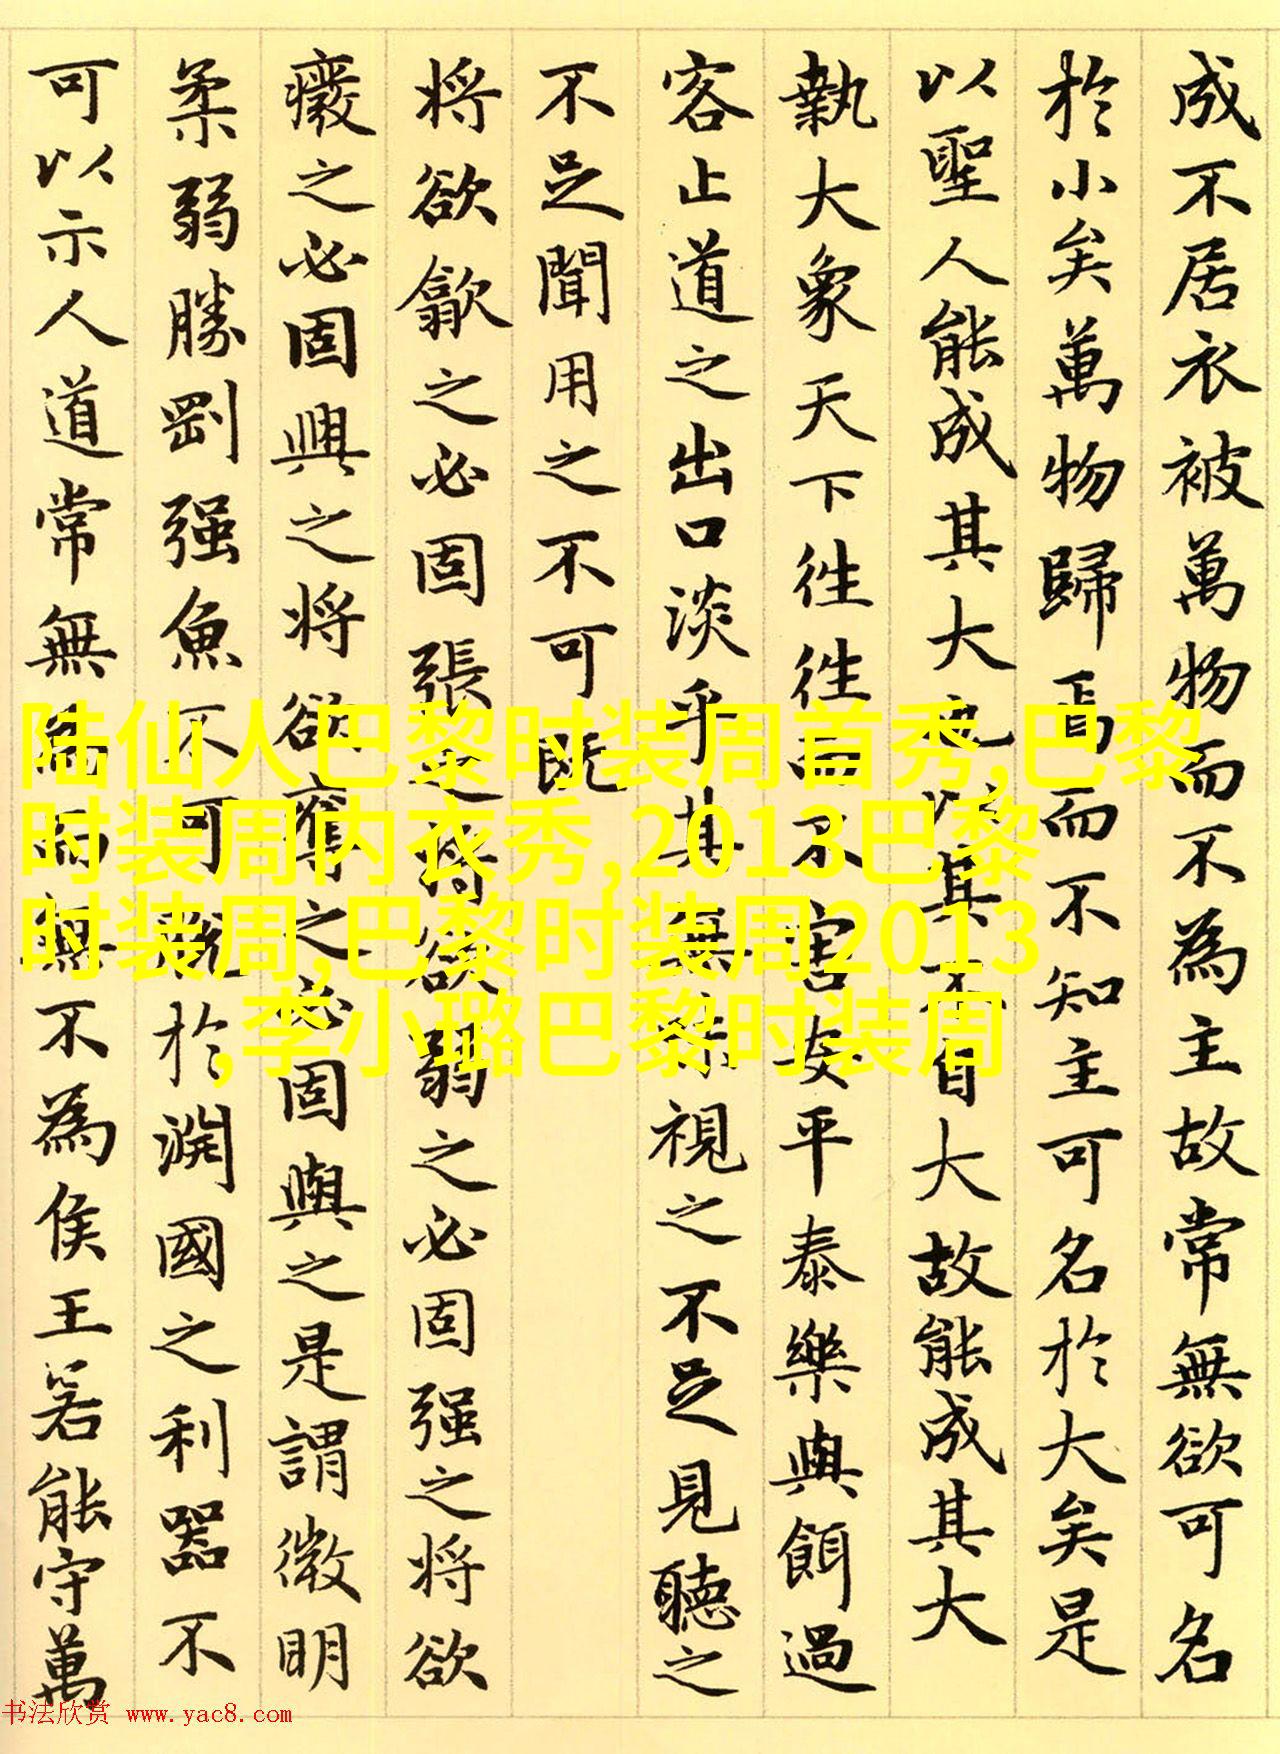 成不居衣被萬物而不為主故常無欲可名
於小矣萬物歸焉而不知主可名於大矣是
以聖人能成其大也以其不自大故能成其大
執大象天下往往而不害安平泰樂與餌過
客止道之出口淡乎其無味視之不足見聽之
不足聞用之不可既
将欲歙之必固張之将欲弱之必固强之将欲
癈之必固興之将欲奪之必固與之是謂微明
柔弱勝剛强魚不可脱於淵國之利器不
可以示人道常無為而無不為侯王若能守萬
陆仙人巴黎时装周首秀,巴黎
时装周内衣秀,2013巴黎
时装周,巴黎时装周2013
,李小璐巴黎时装周
书法欣赏 www.yac8.com